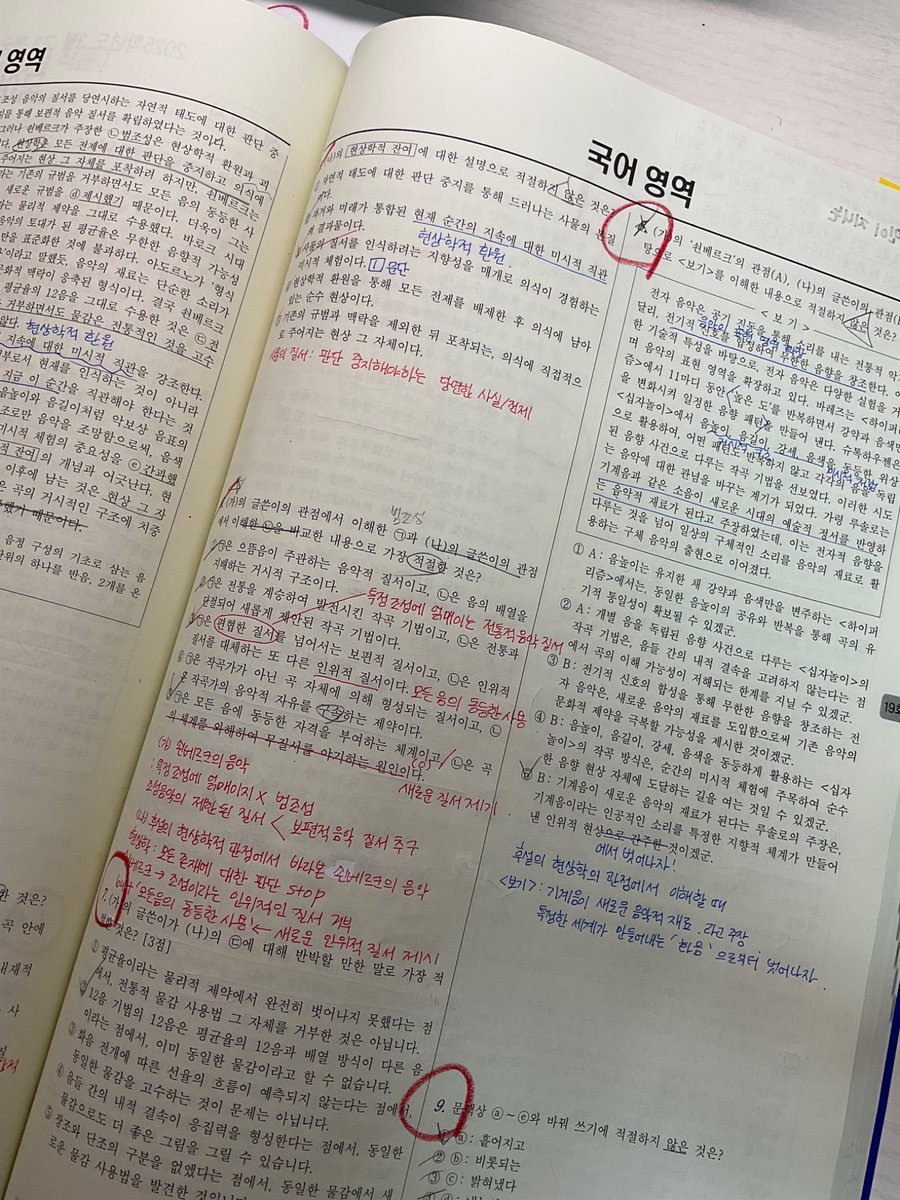 영역
조성 음악의 질서를 당연시하는 자연적 태도에 대한 판단 중
를 통해 보편적 음악 질서를 확립하였다는 것이다.
그러나 쇤베르크가 주장한 ㉡범조성은 현상학적 환원과 괴
다. 현상학은 모든 전제에 대한 판단을 중지하고 의식에
주어지는 현상 그 자체를 포착하려 하지만, 쇤베르크는
라는 기존의 규범을 거부하면서도 모든 음의 동등한 사
새로운 규범을 ⓓ제시했기 때문이다. 더욱이 그는
라는 물리적 제약을 그대로 수용했다. 바로크 시대
음악의 토대가 된 평균율은 무한한 음향적 가능성
을 표준화한 것에 불과하다. 아도르노가 '형식
라고 말했듯, 음악의 재료는 단순한 소리가
문화적 맥락이 응축된 형식이다. 결국 쇤베르크
평균율의 12음을 그대로 수용한 것은 ㉢전
거부하면서도 물감은 전통적인 것을 고수
않다. 현상학적 환원
지속에 대한 미시적 직관을 강조한다.
거부로서 현재를 인식하는 것이 아니라
지금 이 순간을 직관해야 한다는 것
음높이와 음길이처럼 악보상 음표의
조로만 음악을 조망함으로써, 음색
미시적 체험의 중요성을 ⓔ간과했
적 잔여의 개념과 어긋난다. 현
이후에 남는 것은 현상 그 자
은 곡의 거시적인 구조에 치중
했기 때문이다.
음정 구성의 기초로 삼는 음
단위의 하나를 반음, 2개를 온
국어 영역
(나)의 현상학적 잔여에 대한 설명으로 적절하지 않은 것은?
자연적 태도에 대한 판단 중지를 통해 드러나는 사물의 본질
이다.
과거와 미래가 통합된 현재 순간의 지속에 대한 미시적 직관
의 결과물이다.
현상학적 환원
사물과 질서를 인식하려는 지향성을 매개로 의식이 경험하는
미시적 체험이다.
현상학적 환원을 통해 모든 전제를 배제한 후 의식에 남아
있는 순수 현상이다.
기존의 규범과 맥락을 제외한 뒤 포착되는, 의식에 직접적으
로 주어지는 현상 그 자체이다.
질서: 판단 중지해야하는 당연한 사실/전제
범조성
(가)의 글쓴이의 관점에서 이해한 ㉠과 (나)의 글쓴이의 관점
에서 이해한 ㉡을 비교한 내용으로 가장 적절한 것은?
㉠은 으뜸음이 주관하는 음악적 질서이고, ㉡은 음의 배열을
지배하는 거시적 구조이다.
㉠은 전통을 계승하여 발전시킨 작곡 기법이고, ㉡은 전통과
단절되어 새롭게 제안된 작곡 기법이다.
특정 조성에 얽매이는 전통적 음악 질서
㉠은 편협한 질서를 넘어서는 보편적 질서이고, ㉡은 인위적
질서를 대체하는 또 다른 인위적 질서이다.
모든 음의 동등한 사용
㉠은 작곡가가 아닌 곡 자체에 의해 형성되는 질서이고, ㉡
은 작곡가의 음악적 자유를 구속하는 제약이다.
㉠은 모든 음에 동등한 자격을 부여하는 체계이고, ㉡은 곡
의 체계를 와해하여 무질서를 야기하는 원인이다.
새로운 질서 제기
(가) 쇤베르크의 음악
: 특정 조성에 얽매이지 X 범조성
조성음악의 제한된 질서 < 보편적 음악 질서 추구
(나) 후설의 현상학적 관점에서 바라본 쇤베르크의 음악
현상학: 모든 존재에 대한 판단 stop
쇤베르크 → 조성이라는 인위적인 질서 거부
but '모든음의 동등한 사용' ← 새로운 인위적 질서 제시
7. (가)의 글쓴이가 (나)의 ㉢에 대해 반박할 만한 말로 가장 적
절한 것은? [3점]
① 평균율이라는 물리적 제약에서 완전히 벗어나지 못했다는 점
에서, 전통적 물감 사용법 그 자체를 거부한 것은 아닙니다.
② 12음 기법의 12음은 평균율의 12음과 배열 방식이 다른 음
이라는 점에서, 이미 동일한 물감이라고 할 수 없습니다.
③ 화음 전개에 따른 선율의 흐름이 예측되지 않는다는 점에서,
동일한 물감을 고수하는 것이 문제는 아닙니다.
④ 음들 간의 내적 결속이 응집력을 형성한다는 점에서, 동일한
물감으로도 더 좋은 그림을 그릴 수 있습니다.
⑤ 장조와 단조의 구분을 없앴다는 점에서, 동일한 물감에서 새
로운 물감 사용법을 발견한 것입니다.
8. (가)의 '쇤베르크'의 관점(A), (나)의 글쓴이의 관점(B)
탕으로 <보기>를 이해한 내용으로 적절하지 않은 것은?
< 보 기 >
전자 음악은 공기 진동을 통해 소리를 내는 전통적 악
달리, 전기적 신호를 합성하여 무한한 음향을 창조한다.
한 기술적 특성을 바탕으로, 전자 음악은 다양한 실험을
며 음악의 표현 영역을 확장하고 있다. 바레즈는 <하이퍼
즘>에서 11마디 동안 높은 도를 반복하면서 강약과 음색만
을 변화시켜 일정한 음향 패턴을 만들어 냈다. 슈톡하우젠은
<십자놀이>에서 음높이, 음길이, 강세, 음색을 동등한 위상
으로 활용하여, 어떤 패턴도 반복하지 않고 각각의 음을 독립
된 음향 사건으로 다루는 작곡 기법을 선보였다. 이러한 시도
는 음악에 대한 관념을 바꾸는 계기가 되었다. 가령 루솔로는
기계음과 같은 소음이 새로운 시대의 예술적 정서를 반영하
는 음악적 재료가 된다고 주장하였는데, 이는 전자적 음향을
다루는 것을 넘어 일상의 구체적인 소리를 음악의 재료로 활
용하는 구체 음악의 출현으로 이어졌다.
① A: 음높이는 유지한 채 강약과 음색만을 변주하는 <하이퍼
리즘>에서는, 동일한 음높이의 공유와 반복을 통해 곡의 유
기적 통일성이 확보될 수 있겠군.
② A: 개별 음을 독립된 음향 사건으로 다루는 <십자놀이>의
작곡 기법은, 음들 간의 내적 결속을 고려하지 않는다는 점
에서 곡의 이해 가능성이 저해되는 한계를 지닐 수 있겠군.
③ B: 전기적 신호의 합성을 통해 무한한 음향을 창조하는 전
자 음악은, 새로운 음악의 재료를 도입함으로써 기존 음악의
문화적 제약을 극복할 가능성을 제시한 것이겠군.
④ B: 음높이, 음길이, 강세, 음색을 동등하게 활용하는 <십자
놀이>의 작곡 방식은, 순간의 미시적 체험에 주목하여 순수
한 음향 현상 자체에 도달하는 길을 여는 것일 수 있겠군.
⑤ B: 기계음이 새로운 음악의 재료가 된다는 루솔로의 주장은,
기계음이라는 인공적인 소리를 특정한 지향적 체계가 만들어
낸 인위적 현상으로 간주한 것이겠군.
에서 벗어나자!
후설의 현상학의 관점에서 이해할 때
<보기>: 기계음이 새로운 음악적 재료 라고 주장
특정한 세계가 만들어내는 '화음'으로부터 벗어나자
19회
9. 문맥상 ⓐ~ⓔ와 바꿔 쓰기에 적절하지 않은 것은?
① ⓐ: 흩어지고
② ⓑ: 비롯되는
③ ⓒ: 밝혀냈다